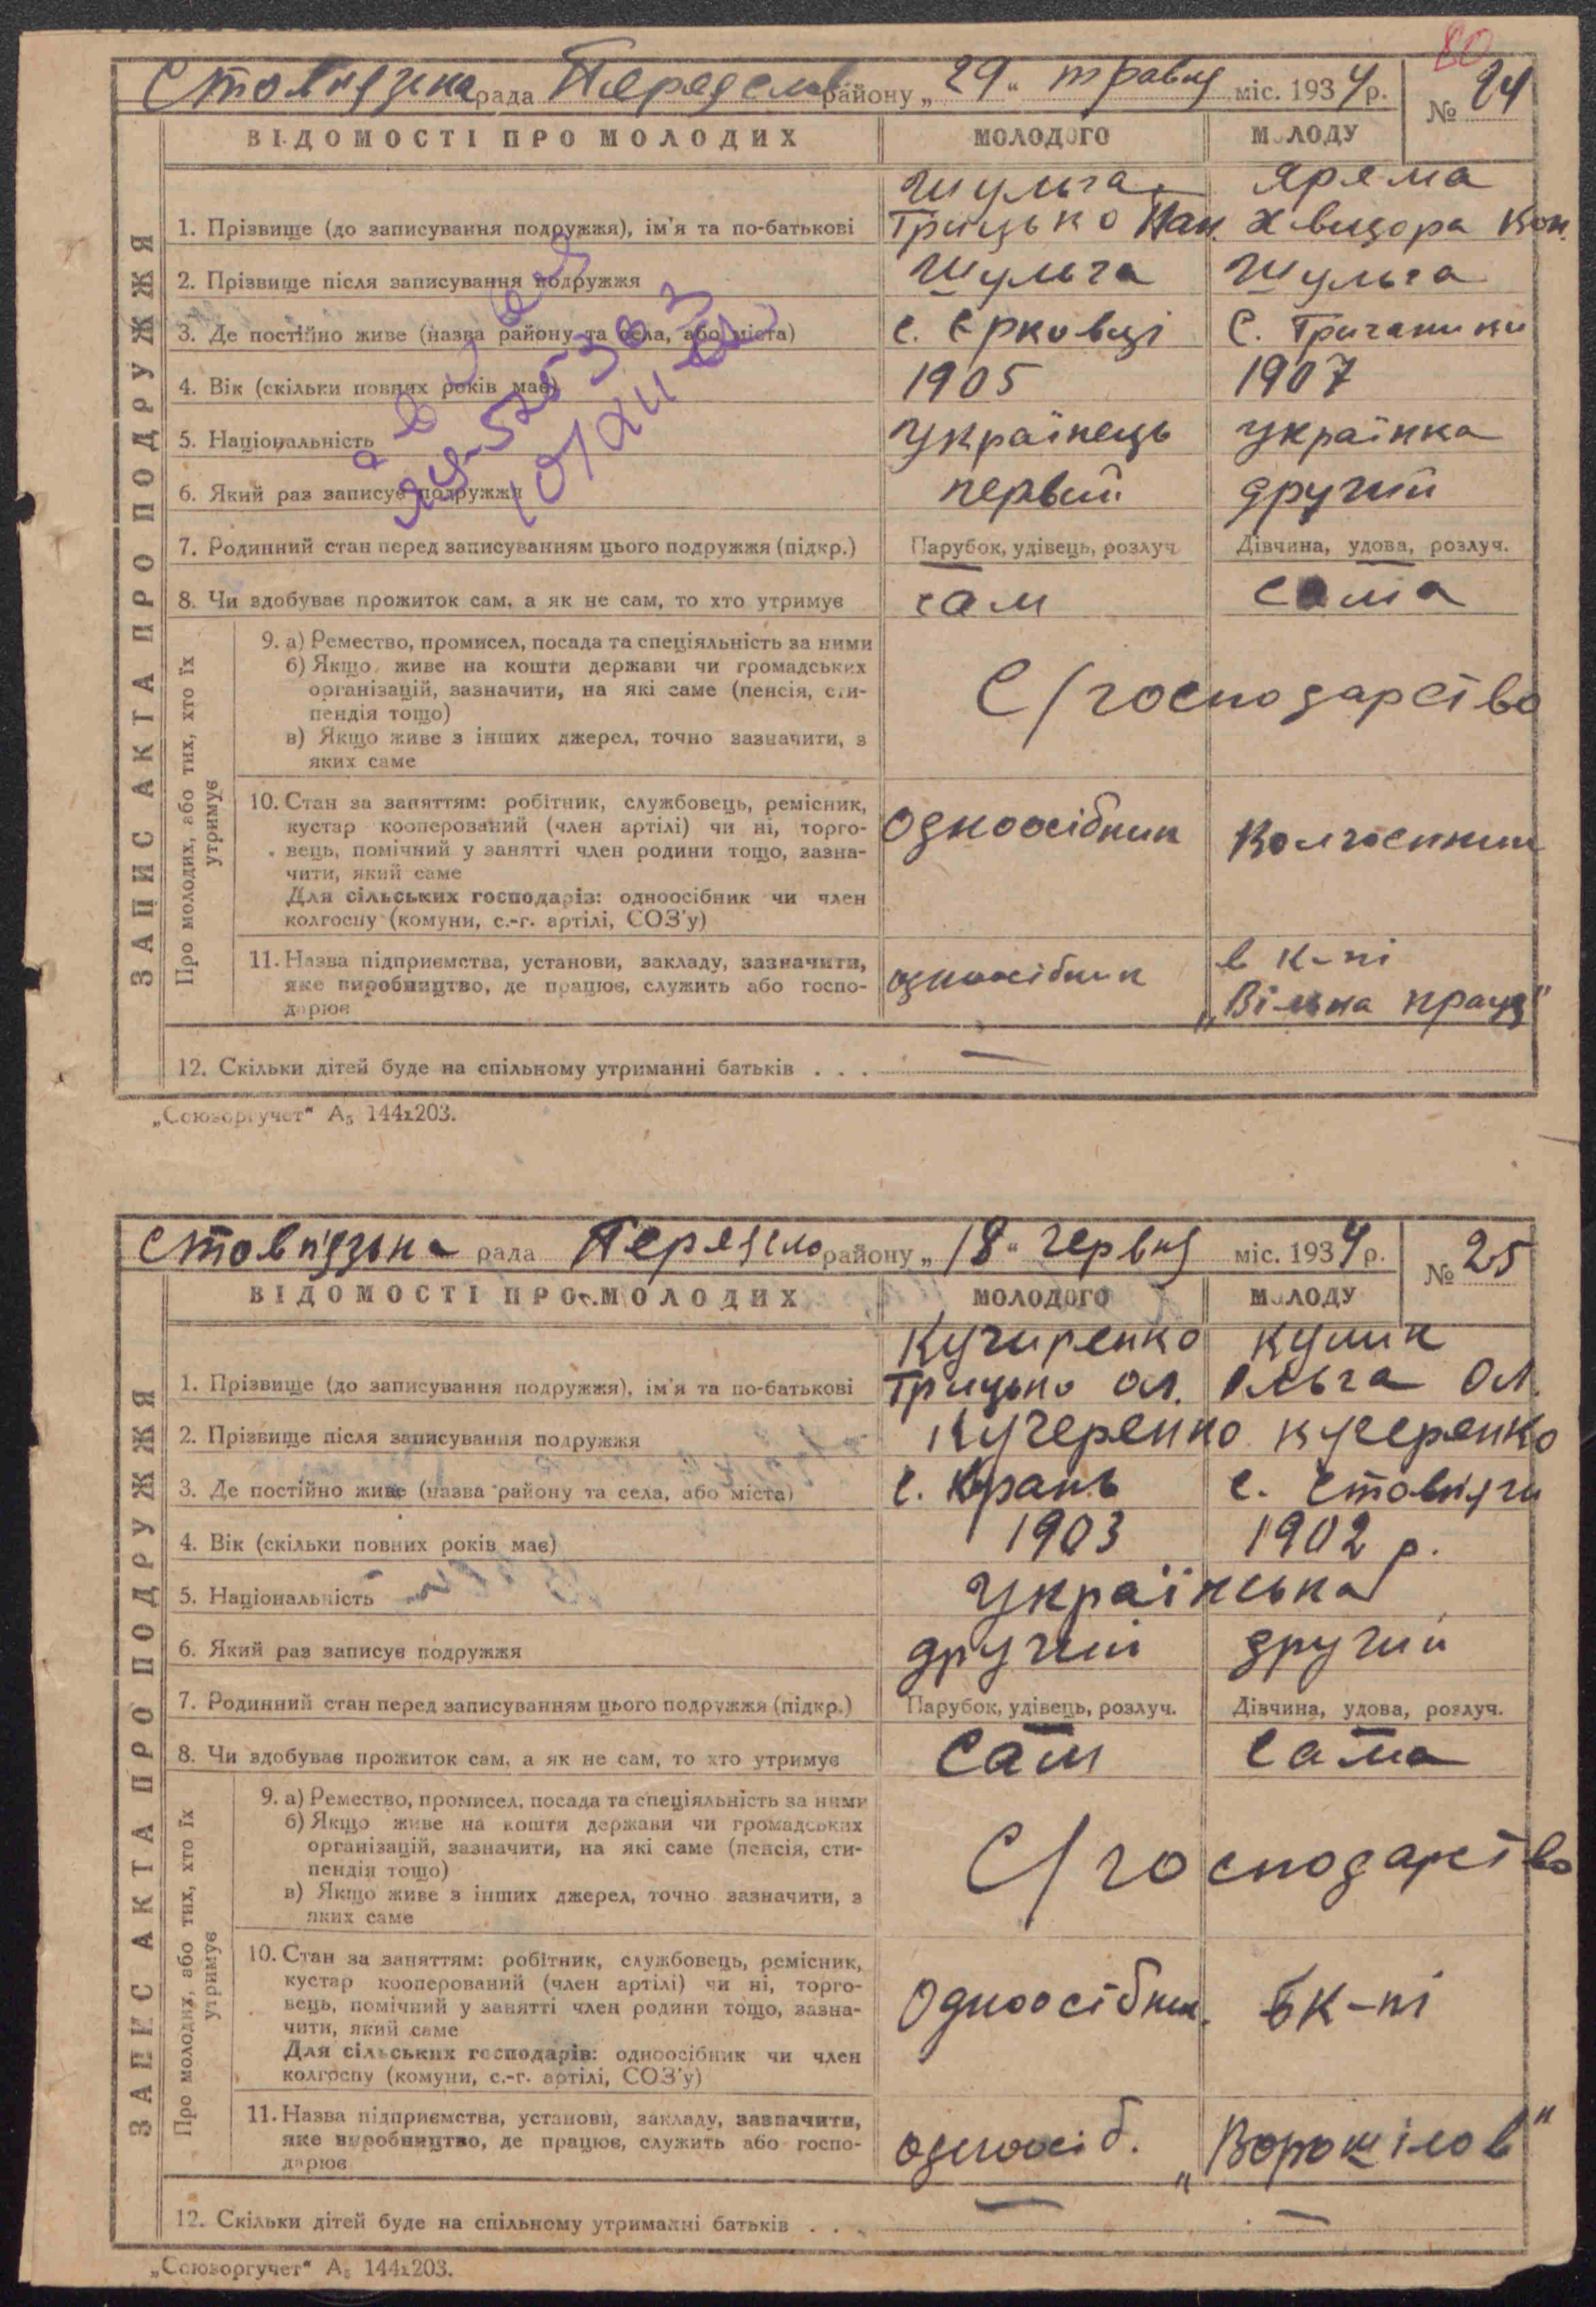 80
Стовпязька рада Переяслав району „29“ травня міс. 1934 р. № 24
ВІДОМОСТІ ПРО МОЛОДИХ МОЛОДОГО МОЛОДУ
ЗАПИС АКТА ПРО ПОДРУЖЖЯ
Шульга Ярема
1. Прізвище (до записування подружжя), ім'я та по-батькові Грицько Пан. Хвидора Кон.
2. Прізвище після записування подружжя Шульга Шульга
3. Де постійно живе (назва району та села, або міста) с. Єрковці С.
4. Вік (скільки повних років має) 1905 1907
5. Національність Українець Українка
6. Який раз записує подружжя первий другий
7. Родинний стан перед записуванням цього подружжя (підкр.) Парубок, удівець, розлуч. Дівчина, удова, розлуч.
8. Чи здобуває прожиток сам, а як не сам, то хто утримує сам сама
Про молодих, або тих, хто їх утримує
9. а) Ремество, промисел, посада та спеціяльність за ними
б) Якщо живе на кошти держави чи громадських
організацій, зазначити, на які саме (пенсія, сти-
пендія тощо) С/господарство
в) Якщо живе з інших джерел, точно зазначити, з
яких саме
10. Стан за заняттям: робітник, службовець, ремісник,
кустар кооперований (член артілі) чи ні, торго- Одноосібник Колгоспник
вець, помічний у занятті член родини тощо, зазна-
чити, який саме
Для сільських господарів: одноосібник чи член
колгоспу (комуни, с.-г. артілі, СОЗ'у)
11. Назва підприємства, установи, закладу, зазначити, в к-пі
яке виробництво, де працює, служить або госпо- одноосібник „Вільна праця“
дарює
12. Скільки дітей буде на спільному утриманні батьків . . . —
„Союзоргучет“ А5 144x203.
Стовп'язька рада Переясло району „18“ червня міс. 1934 р. № 25
ВІДОМОСТІ ПРО МОЛОДИХ МОЛОДОГО МОЛОДУ
ЗАПИС АКТА ПРО ПОДРУЖЖЯ
Кучиренко Кулик
1. Прізвище (до записування подружжя), ім'я та по-батькові Грицько Ол. Ольга Ол.
2. Прізвище після записування подружжя Кучеренко Кучеренко
3. Де постійно живе (назва району та села, або міста) с. Крань с. Стовп'яги
4. Вік (скільки повних років має) 1903 1902 р.
5. Національність Українська
6. Який раз записує подружжя другий другий
7. Родинний стан перед записуванням цього подружжя (підкр.) Парубок, удівець, розлуч. Дівчина, удова, розлуч.
8. Чи здобуває прожиток сам, а як не сам, то хто утримує сам сама
Про молодих, або тих, хто їх утримує
9. а) Ремество, промисел, посада та спеціяльність за ними
б) Якщо живе на кошти держави чи громадських
організацій, зазначити, на які саме (пенсія, сти-
пендія тощо) С/господарство
в) Якщо живе з інших джерел, точно зазначити, з
яких саме
10. Стан за заняттям: робітник, службовець, ремісник,
кустар кооперований (член артілі) чи ні, торго-
вець, помічний у занятті член родини тощо, зазна- Одноосібник. в К-пі
чити, який саме
Для сільських господарів: одноосібник чи член
колгоспу (комуни, с.-г. артілі, СОЗ'у)
11. Назва підприємства, установи, закладу, зазначити,
яке виробництво, де працює, служить або госпо- одноосіб. „Ворошілов“
дарює
12. Скільки дітей буде на спільному утриманні батьків . . . — —
„Союзоргучет“ А5 144x203.